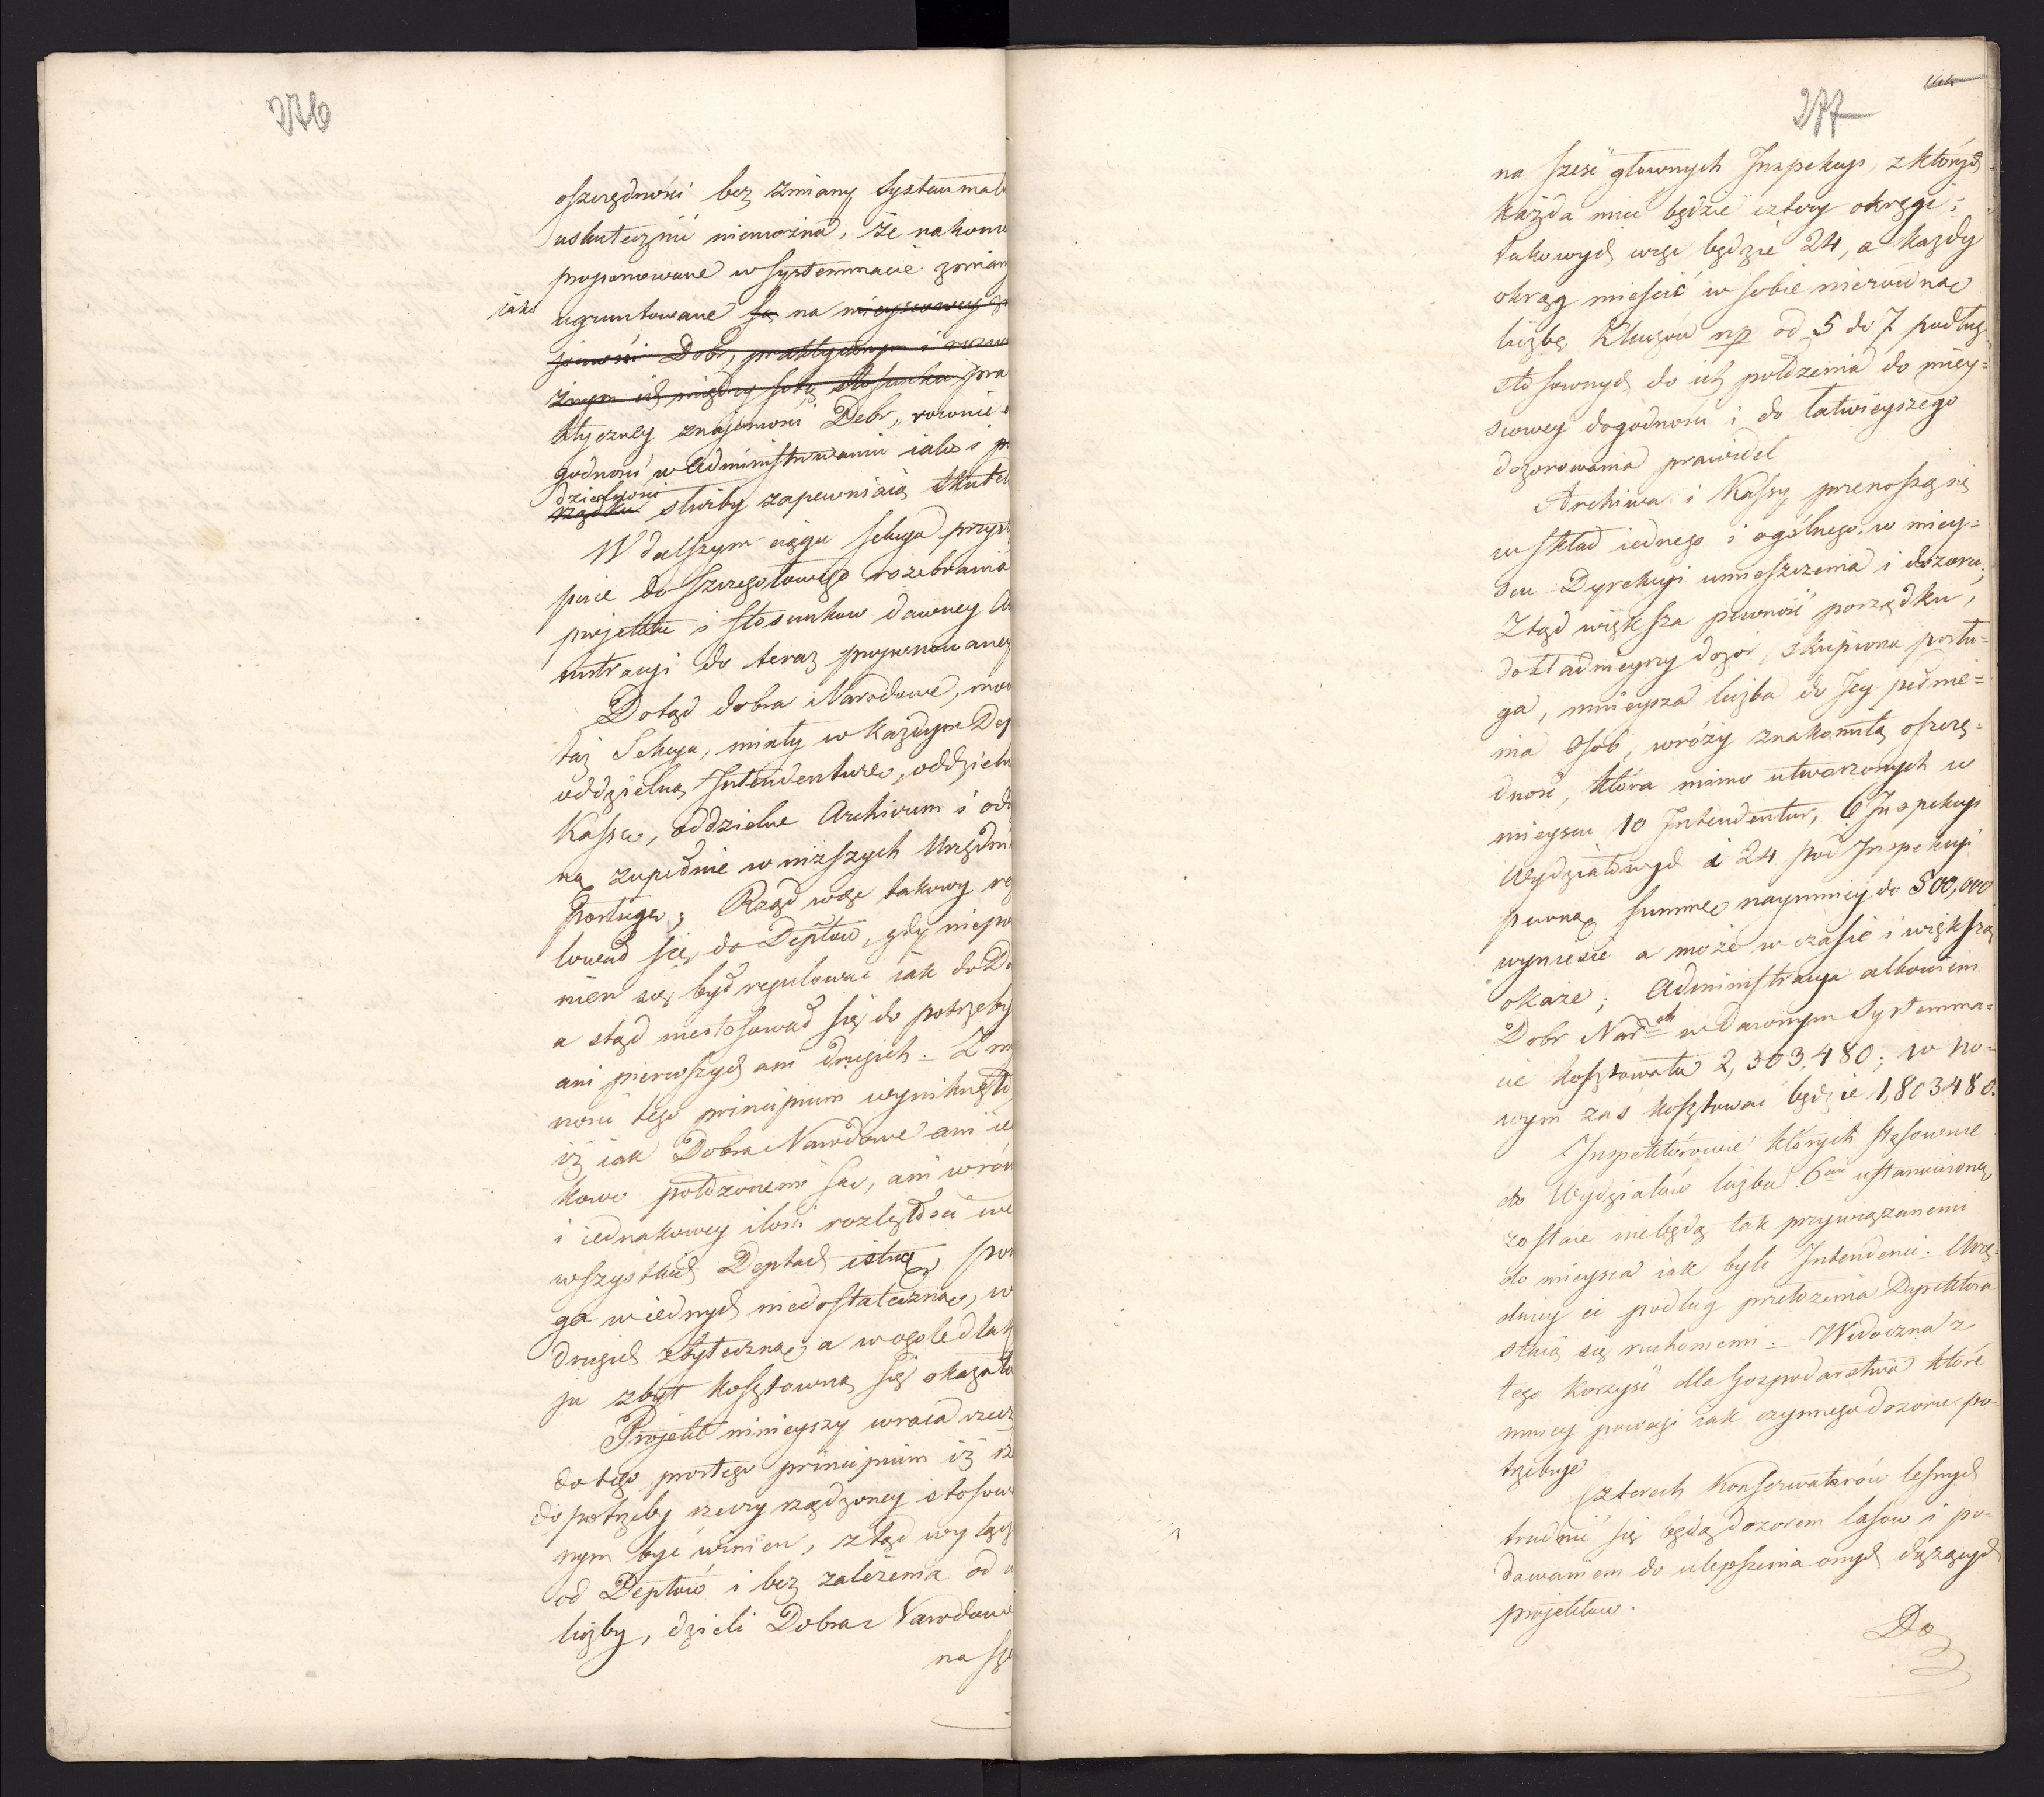 276
oszczędności bez zmiany Systemmat
uskutecznić niemożna, że nakonie
proponowane w systemmacie zmiany
iako ugruntowane są na mieyscowey z
jomości Dobr, praktycznym i rozw
żnym ich między sobą stosunku pra
ktyczney znajomości Dobr, rownie
godność w administrowaniu iako i p
dzielności
rządku służby zapewniaią skutek
W dalszym ciągu Sekcya przyst
puie do szczegołowego rozebrania
projektu i stosunkow dawney A
nistracyi do teraz proponowaney
Dotąd dobra Narodowe, mow
taż Sekcya, miały w każdym Dep
oddzielną Intendenturę, oddzieln
Kassę, oddzielne Archivum i od
ną zupełnie w niższych Urzędni
posługę; Rząd więc takowy re
lował się do Deptow, gdy niepo
nien się był regulować iak do Do
a ztąd niestosował się do potrzeby
ani pierwszych ani drugich. Z m
ności tego principium wyniknęło,
iż iak Dobra Narodowe ani ie
kowo położonemi są, ani w rów
i iednakowey ilości rozległości we
wszystkich Deptach istną, pos
ga w iednych niedostateczną, w
drugich zbyteczną, a w ogole dla k
ju zbyt kosztowną się okazała
Projekt ninieyszy wraca rzecz
do tego prostego principium iż rz
do potrzeby rzeczy rządzoney stosow
nym być winien, ztąd wyłącz
od Deptów i bez zależenia od i
liczby, dzieli Dobra Narodowe
na sze
277
na sześć głownych Inspekcyi, z których
każda mieć będzie cztery okręgi;
takowych więc będzie 24, a każdy
okrąg mieścić w sobie nierowną
liczbę Kluczów np od 5 do 7 podług
stosownych do ich położenia do miey=
scowey dogodności i do łatwieyszego
dozorowania prawideł
Archiwa i Kassy przenoszą się
w skład iednego i ogólnego w miey=
scu Dyrekcyi umieszczenia i dozoru;
Ztąd większa pewność porządku,
dokładnieyszy dozór, skupiona posłu=
ga, mnieysza liczba do Jey pełnie=
nia osob, wróży znakomitą oszczę=
dność, która mimo utworzonych w
mieyscu 10 Intendentur, 6 Inspekcyi
Wydziałowych i 24 pod Inspekcyi
pewną summę naymniey do 500,000
wyniesie a może w czasie i większą
okaże; Administracya albowiem
Dobr Narch w dawnym Systemma=
cie kosztowała 2,303,480; w no=
wym zaś kosztować będzie 1,803480.
Inspektórowie których stosownie
do Wydziałów liczba 6ciu ustanowioną
zostaie niebędą tak przywiązanemi
do mieysca iak byli Intendenci. Urzę=
dnicy ci podług przełożenia Dyrektora
staią się ruchomemi. Widoczna z
tego korzyść dla Gospodarstwa które
mniey powagi iak czynnego dozoru po=
trzebuje
Czterech Konserwatorów leśnych
trudnić się będą dozorem lasow i po=
dawaniem do ulepszenia onych dążących
projektow.
Do